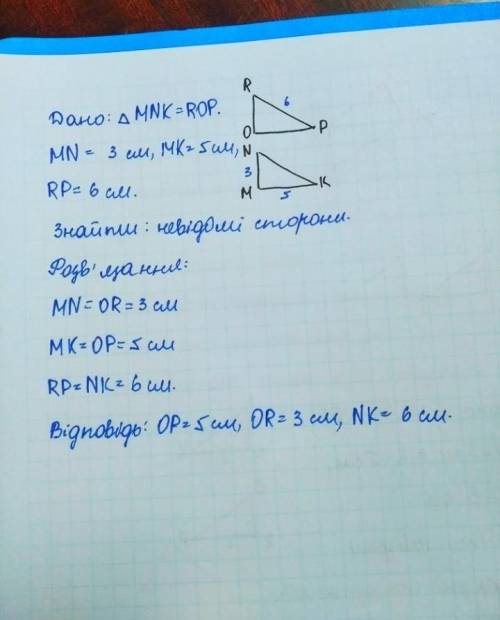 Дано: △ MNK = ROP.
MN = 3 см, MK = 5 см,
RP = 6 см.
R
6
O
P
N
3
M
5
K
Знайти: невідомі сторони.
Розв'язання:
MN = OR = 3 см
MK = OP = 5 см
RP = NK = 6 см.
Відповідь: OP = 5 см, OR = 3 см, NK = 6 см.